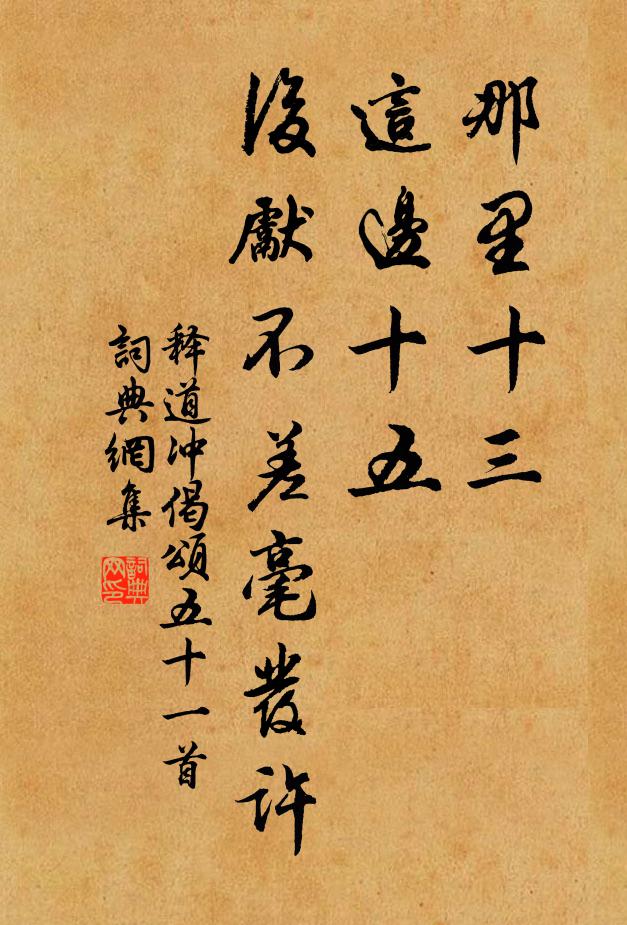 那里十三
這邊十五
後獻不差毫發許
释道冲偈頌五十一首
詞典網集
詞典
网印